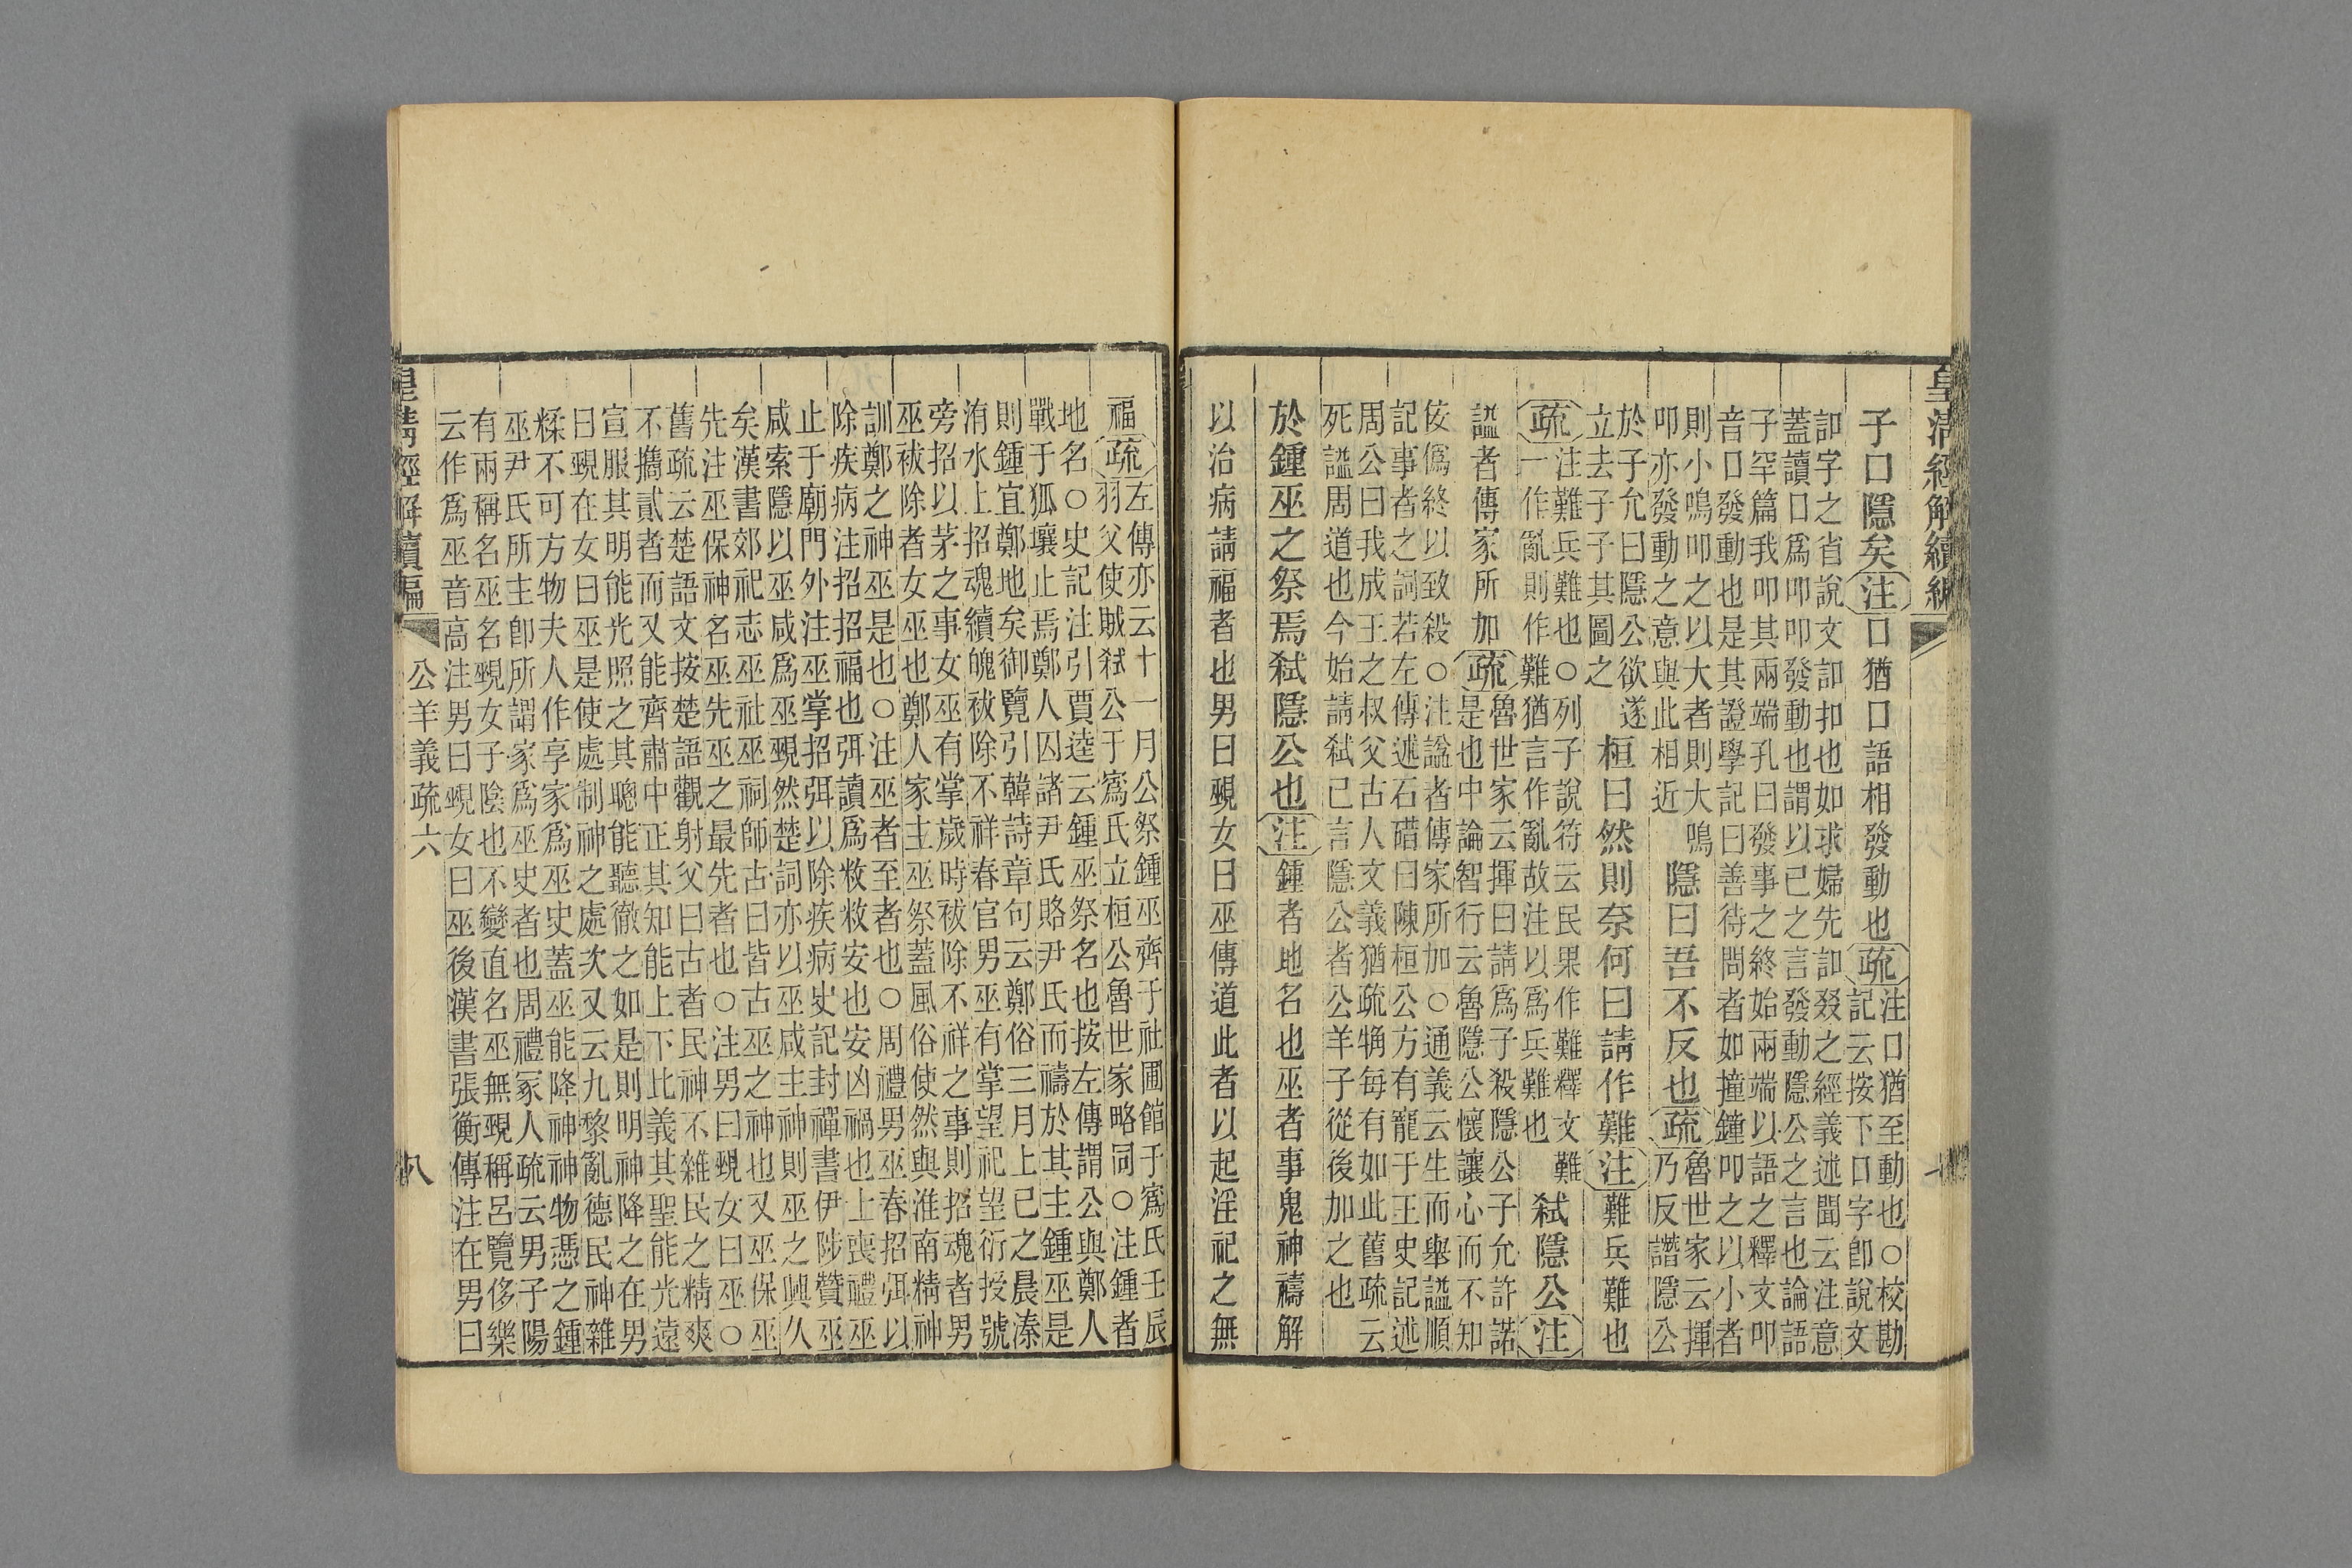 皇清經解續編
子口隱矣注口猶口語相發動也疏注口猶至動也○校勘
記云按下口字卽說文
字之省說文扣也如求婦先叕之經義述聞云注意
蓋讀口爲叩叩發動也謂以已之言發動隱公之言也論語
子罕篇我叩其兩端孔曰發事之終始兩端以語之釋文叩
音口發動也是其證學記曰善待問者如撞鐘叩之以小者
則小鳴叩之以大者則大鳴
叩亦發動之意與此相近
隱曰吾不反也疏魯世家云揮
乃反譖隱公
於子允曰隱公欲遂
立去子子其圖之
桓曰然則奈何曰請作難注難兵難也
疏注難兵難也○列子說符云民果作難釋文難
一作亂則作難猶言作亂故注以爲兵難也
弑隱公注
諡者傳家所加疏魯世家云揮曰請爲子殺隱公子允許諾
是也中論智行云魯隱公懷讓心而不知
佞僞終以致殺○注諡者傳家所加○通義云生而舉諡順
記事者之詞若左傳述石碏曰陳桓公方有寵于王史記述
周公曰我成王之叔父古人文義猶疏牣每有如此舊疏云
死諡周道也今始請弑已言隱公者公羊子從後加之也
於鍾巫之祭焉弑隱公也注鍾者地名也巫者事鬼神禱解
以治病請福者也男曰覡女曰巫傳道此者以起淫祀之無
福疏左傳亦云十一月公祭鍾巫齊于社圃館于寪氏壬辰
羽父使賊弑公于寪氏立桓公魯世家略同○注鍾者
地名○史記注引賈逵云鍾巫祭名也按左傳謂公與鄭人
戰于狐壤止焉鄭人囚諸尹氏賂尹氏而禱於其主鍾巫是
則鍾宜鄭地矣御覽引韓詩章句云鄭俗三月上已之晨溱
洧水上招魂續魄祓除不祥春官男巫有掌望祀望衍授號
旁招以茅之事女巫有掌歲時祓除不祥之事則招魂者男
巫祓除者女巫也鄭人家主巫祭蓋風俗使然與淮南精神
訓鄭之神巫是也○注巫者至者也○周禮男巫春招弭以
除疾病注招招福也弭讀爲敉敉安也安凶禍也上喪禮巫
止于廟門外注巫掌招弭以除疾病史記封禪書伊陟贊巫
咸索隱以巫咸爲巫覡然楚詞亦以巫咸主神則巫之興久
矣漢書郊祀志巫社巫祠師古曰皆古巫之神也又巫保巫
先注巫保神名巫先巫之最先者也○注男曰覡女曰巫○
舊疏云楚語文按楚語觀射父曰古者民神不雜民之精爽
不攜貳者而又能齊肅中正其知能上下比義其聖能光遠
宣服其明能光照之其聰能聽徹之如是則明神降之在男
曰覡在女曰巫是使處制神之處次又云九黎亂德民神雜
糅不可方物夫人作享家爲巫史蓋巫能降神神物憑之鍾
巫尹氏所主卽所謂家爲巫史者也周禮冢人疏云男子陽
有兩稱名巫名覡女子陰也不變直名巫無覡稱呂覽侈樂
云作爲巫音高注男曰覡女曰巫後漢書張衡傳注在男曰
皇清經解續編 公羊義疏六 八